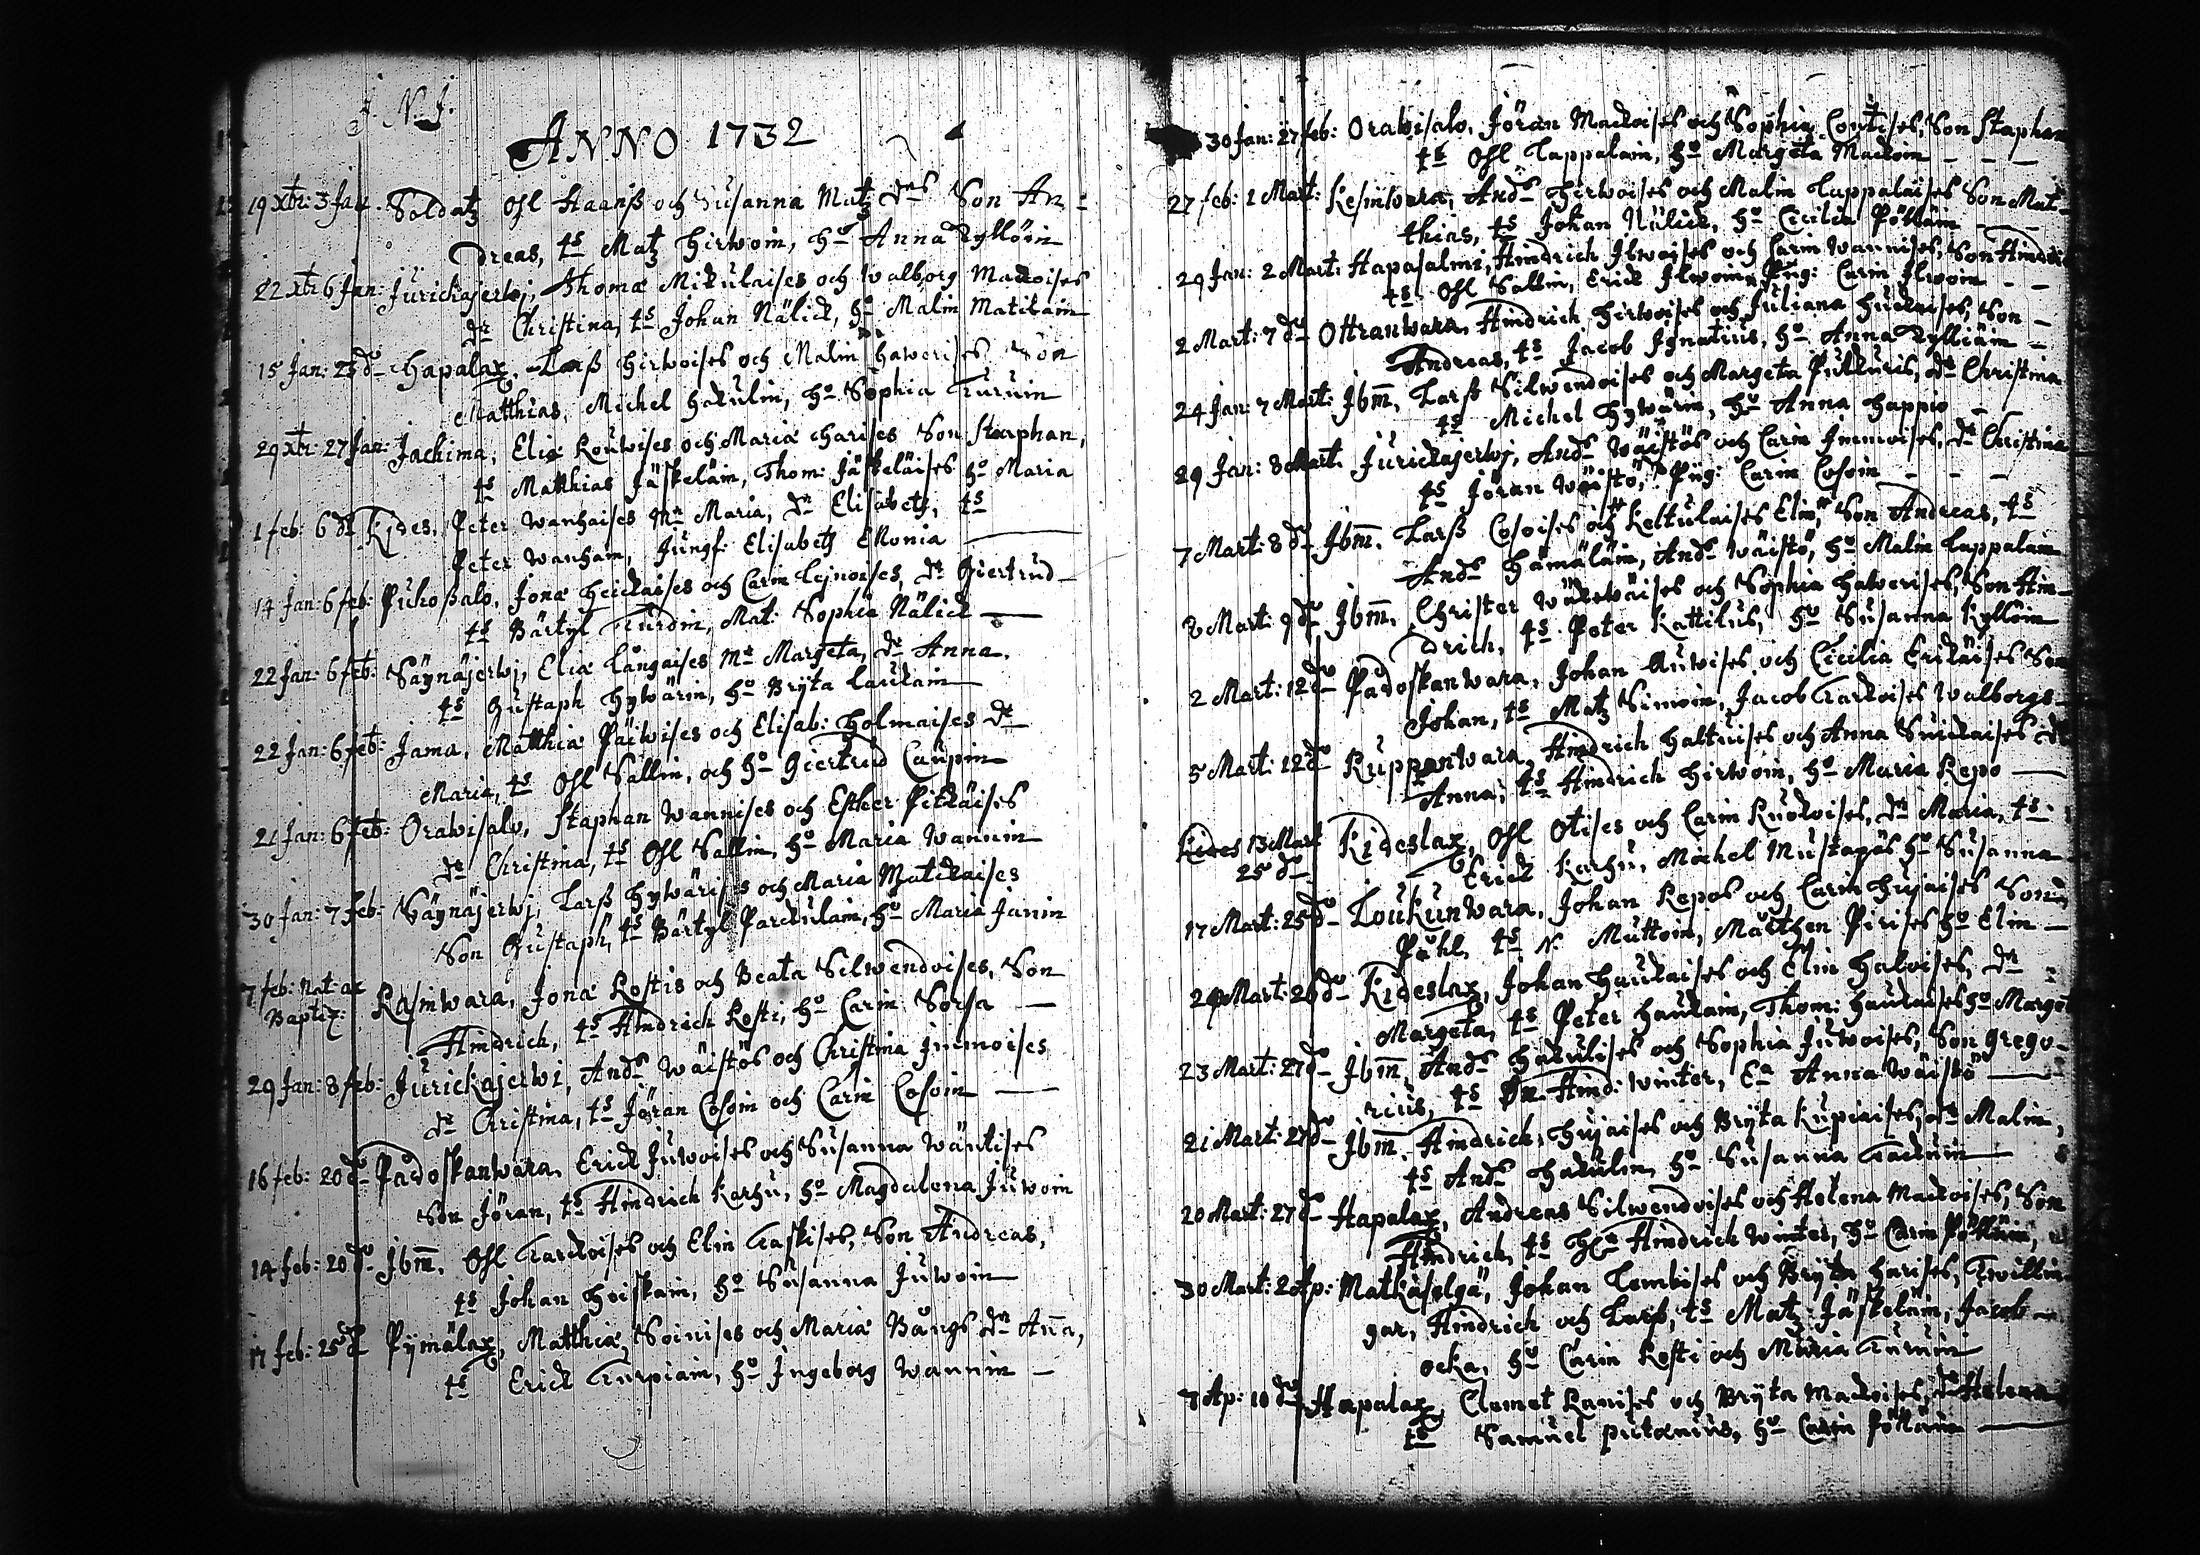 J. N. J.
ANNO 1732
19 xbr: 3 Jan: Soldatz Ohl Haanß och Susanna Matz drs Son An-
dreas, ts Matz Hirwoin, ho Anna Kyllöin
22 xbr 6 Jan: Jurickajerwj, Thomæ Mikulaises och Walborg Mackoises
dr Christina, ts Johan Nälick, ho Malin Matikain
15 Jan: 25 do Hapalax, Larß Hirwoises och Malin Hawerises Son
Matthias, Michel Hakulin, ho Sophia Turuin
29 xbr: 27 Jan: Jachima, Eliæ Rouwises och Mariæ Harises Son Staphan,
ts Matthias Jäskeläin, Thom: Jäskeläises ho Maria
1 feb: 6 do Kides, Peter Wanhaises Mr Maria, dr Elisabetz, ts
Peter Wanhain, Jungf: Elisabetz Ekonia
14 Jan: 6 feb: Puhoßalo, Jonæ Heickaises och Carin Lejnoises, dr Giertrud
ts Bärtyl Turoin, Mat: Sophia Nälick
22 Jan: 6 feb: Säynäjerwj, Eliæ Långaises Mr Margeta, dr Anna.
ts Gustaph Hywärin, ho Bryta Laukain
22 Jan: 6 feb: Jama, Matthiæ Päiwises och Elisab: Holmaises dr
Maria, ts Ohl Sallin, och ho Giertrud Caupin
21 Jan: 6 feb: Orawisalo, Staphan Wannises och Esther Pitkäises
dr Christina, ts Ohl Sallin, ho Maria Wannin
30 Jan: 7 feb: Säynäjerwj, Larß Hywärises och Maria Matikaises
Son Gustaph, ts Bärtyl Parckulain, ho Maria Janin
7 feb: nat: ac Rasinwara, Jonæ Rostis och Beata Silwendoises, Son
Baptiz: Hindrich, ts Hindrich Rosti, ho Carin Sorsa
29 Jan: 8 feb: Jurickajerwi, Ands Wäistös och Christina Immoises
dr Christina, ts Jöran Cosoin och Carin Cosoin
16 feb: 20 do Padoskanwara, Erick Juwoises och Susanna Wäntises
Son Jöran, ts Hindrich Karhu, ho Magdalena Juwoin
14 feb: 20 do Ibm. Ohl Tarckoises och Elin Taskises, Son Andreas,
ts Johan Hoiskain, ho Susanna Juwoin
17 feb: 25 do Pymälax, Matthiæ Soinises och Mariæ Bångs dr Anna,
ts Erick Turpiain, ho Ingeborg Wannin
30 Jan: 27 feb: Orawisalo, Jöran Mackoises och Sophia Contises, Son Staphan
ts Ohl Lappalain, ho Margeta Mackoin
27 feb: 1 Mart: Kesinwara, Ands Hirwoises och Malin Lappalaises Son Mat-
thias, ts Johan Nälick, ho Cicilia Pöllän
29 Jan: 2 Mart: Hapasalmi, Hindrich Ilwoises och Carin Wannises, Son Hindrich
ts Ohl Sallin, Erick Ilwoin, Pig: Carin Ilwoin
2 Mart: 7 do Ottranwara, Hindrich Hirwoises och Juliana Huckaises, Son
Andreas, ts Jacob Ignatius, ho Anna Kylliäin
24 Jan: 7 Mart: Ibm. Larß Silwendoises och Margeta Pulkuris, dr Christina
ts Michel Hywärin, ho Anna Happio
29 Jan: 8 Mart: Jurickajerwj, Ands Wäistös och Carin Immoises, dr Christina
ts Jöran Wäistö, Pig: Carin Cosoin
7 Mart: 8 do Ibm. Larß Cosoises och Keltulaises Elin, Son Andreas, ts
Ands Hämäläin, Ands Wäistö, ho Malin Lappalain
2 Mart: 9 do Ibm. Christer Wäkewäises och Sophia Haweris, Son Hin-
drich, ts Peter Kattilus, ho Susanna Kyllöin
2 Mart: 12 do Padoskanwara, Johan Auwises och Cicilia Erickäises Son
Johan, ts Matz Simoin, Jacob Tarckoises Walborgs
5 Mart: 12 do Ruppanwara, Hindrich Haltuises och Anna Suickaises dr
Anna, ts Hindrich Hirwoin, ho Maria Repo
Kides 13 Mart Kideslax, Ohl Otises och Carin Kuckoises, dr Maria, ts
25 do Erick Karhu, Michel Mustapäs ho Susanna
17 Mart: 25 do Loukunwara, Johan Repos och Carin Hujaises Son
Påhl, ts N. Muttoin, Mårthen Pirises ho Elin
24 Mart: 26 do Kideslax, Johan Haukaises och Elin Haloises, dr
Margeta, ts Peter Haukain, Thom: Haukaises ho Marget
23 Mart: 27 do Ibm. Ands Hakulises och Sophia Juwoises, Son Grego-
rius, ts Hind: Winter, Ea Anna Wäistö
21 Mart: 27 do Ibm. Hindrich Hujaises och Bryta Kupiaises, dr Malin,
ts Ands Hakulin, ho Susanna Tackuin
20 Mart: 27 do Hapalax, Andreas Silwendoises och Helena Mackoises, Son
Hindrich, ts Hindrich Winter, ho Carin Pölläin,
30 Mart: 2 Ap: Matkaselgä, Johan Lembises och Bryta Harises, Twillin-
gar, Hindrich och Larß, ts Matz Jäskeläin, Jacob
ocka, ho Carin Rosti och Maria Turuin
7 Ap: 10 do Hapalax, Clemet Ranises och Bryta Mackoises, dr Helena
ts Samuel Putænius, ho Carin Pölläin